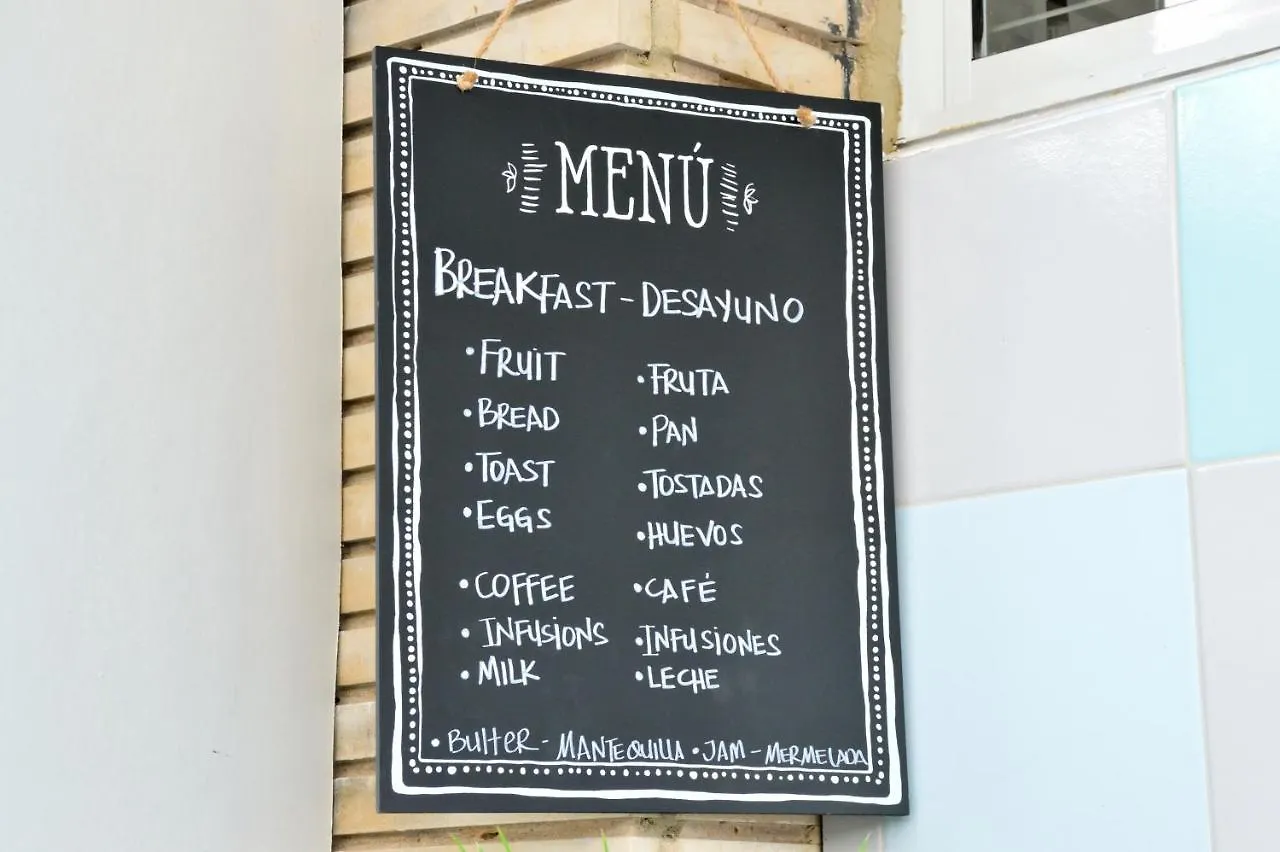 MENÚ
BREAKFAST - DESAYUNO
• FRUIT
• BREAD
• TOAST
• EGGS
• COFFEE
• INFUSIONS
• MILK
• FRUTA
• PAN
• TOSTADAS
• HUEVOS
• CAFÉ
• INFUSIONES
• LECHE
• BUTTER - MANTEQUILLA • JAM - MERMELADA